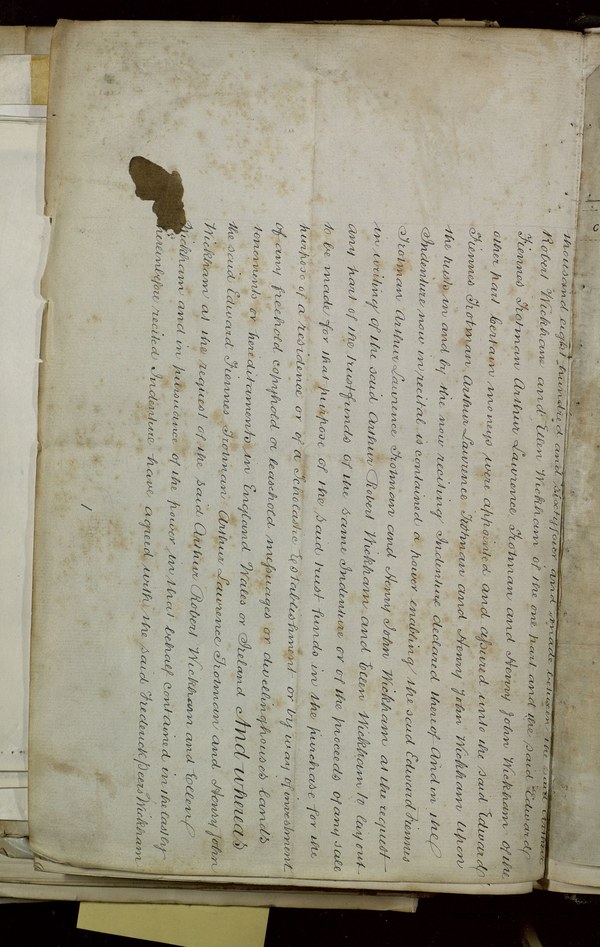 thousand eight hundred and sixty four and made between the said Arthur
Robert Wickham and Ellen Wickham of the one part and the said Edward
Fiennes Trotman Arthur Lawrence Trotman and Henry John Wickham of the
other part Certain moneys were appointed and assured unto the said Edward
Fiennes Trotman Arthur Lawrence Trotman and Henry John Wickham Upon
the trusts in and by the now reciting Indenture declared thereof And in the
Indenture now in recital is contained a power enabling the said Edward Fiennes
Trotman Arthur Lawrence Trotman and Henry John Wickham at the request
in writing of the said Arthur Robert Wickham and Ellen Wickham to lay out
any part of the trust funds of the same Indenture or of the proceeds of any sale
to be made for that purpose of the said trust funds in the purchase for the
purpose of a residence or of a Scholastic Establishment or by way of investment
of any freehold copyhold or leasehold messuages or dwellinghouses lands
tenements or hereditaments in England Wales or Ireland And whereas
the said Edward Fiennes Trotman Arthur Lawrence Trotman and Henry John
Wickham at the request of the said Arthur Robert Wickham and Ellen
Wickham and in pursuance of the power in that behalf contained in the lastly
hereinbefore recited Indenture have agreed with the said Frederick Peers Wickham